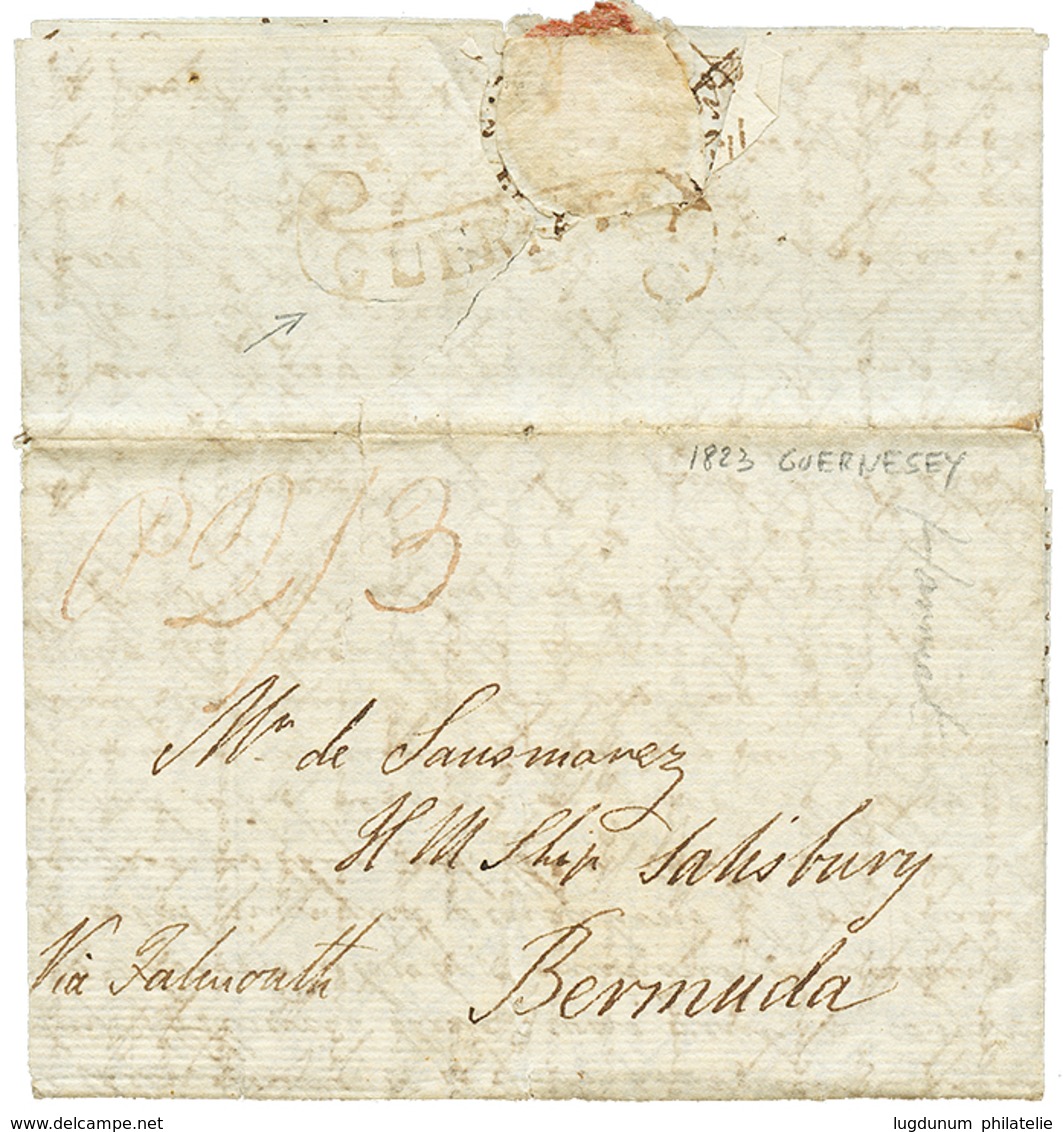 GUER
1823 GUERNESEY
PD/3
Mr. de Sausmarez
H M Ship Salisbury
Via Falmouth
Bermuda
delcampe.net
lugdunum philatelie